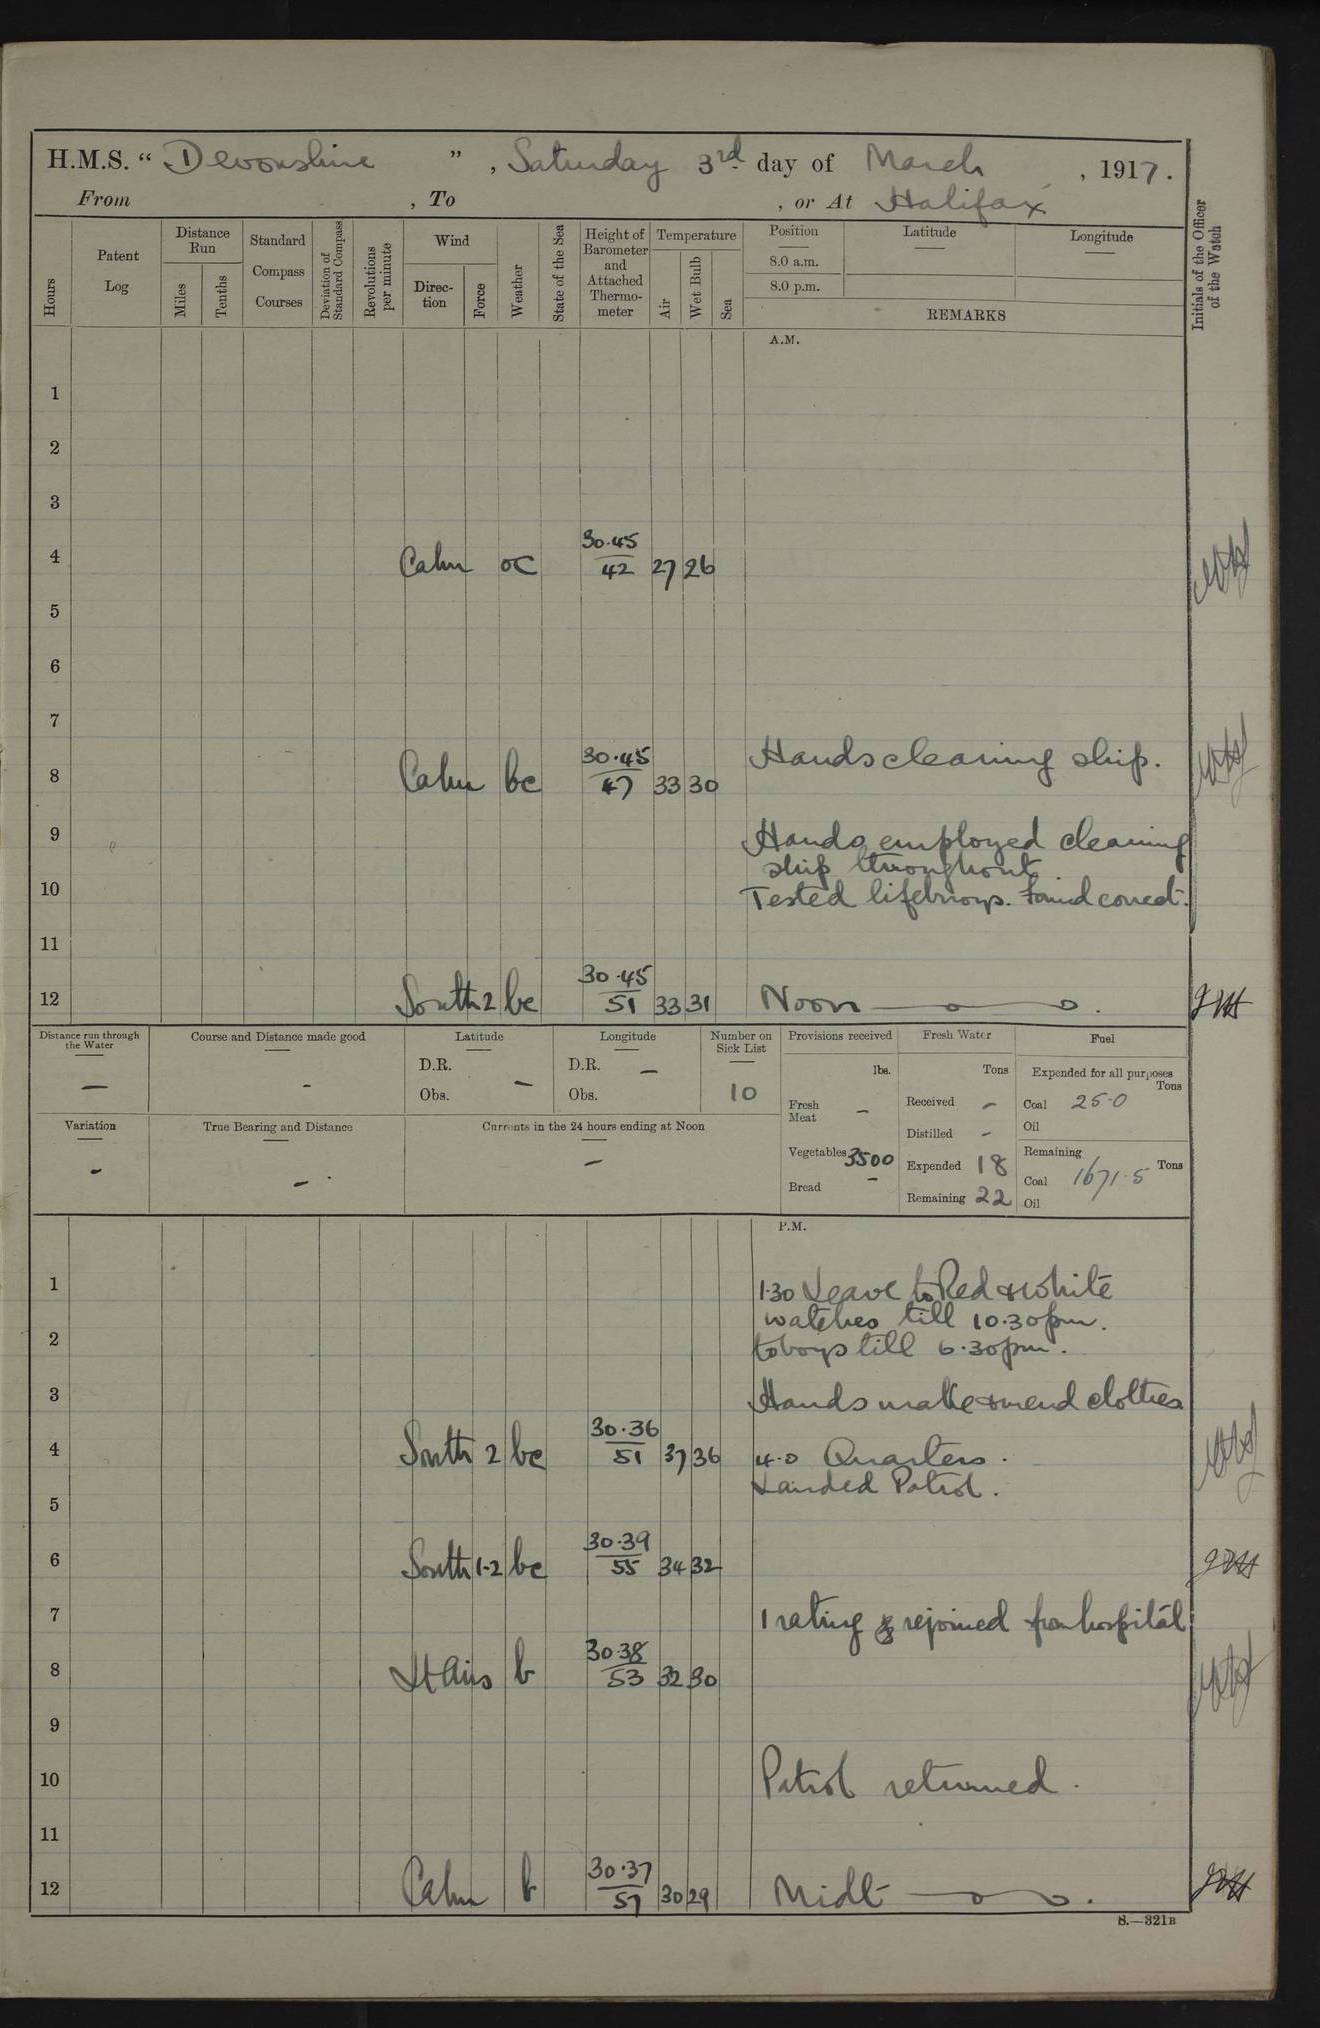 H.M.S. “ Devonshire ”, Saturday 3rd day of March, 1917.
From , To , or At Halifax
Hours
Patent Log
Distance Run
Miles
Tenths
Standard Compass Courses
Deviation of Standard Compass
Revolutions per minute
Wind
Direction
Force
Weather
State of the Sea
Height of Barometer and Attached Thermometer
Temperature
Air
Wet Bulb
Sea
Position
8.0 a.m.
8.0 p.m.
Latitude
Longitude
REMARKS
Initials of the Officer of the Watch
A.M.
1
2
3
4 Calm oc 30.45 42 27 26
5
6
7
8 Calm bc 30.45 47 33 30 Hands cleaning ship.
9 Hands employed cleaning
ship throughout.
10 Tested lifebuoys. Found correct.
11
12 South 2 bc 30.45 51 33 31 Noon
Distance run through the Water
—
Course and Distance made good
-
Latitude
D.R.
Obs. —
Longitude
D.R. —
Obs.
Number on Sick List
10
Provisions received
lbs.
Fresh Meat -
Vegetables 3500
Bread -
Fresh Water
Tons
Received -
Distilled -
Expended 18
Remaining 22
Fuel
Expended for all purposes
Tons
Coal 25.0
Oil
Remaining
Tons
Coal 1671.5
Oil
Variation
-
True Bearing and Distance
-
Currents in the 24 hours ending at Noon
—
P.M.
1 1.30 Leave to Red & White
watches till 10.30pm.
2 to boys till 6.30pm.
3 Hands make & mend clothes
4 South 2 bc 30.36 51 37 36 4.0 Quarters.
Landed Patrol.
5
6 South 1-2 bc 30.39 55 34 32
7 1 rating rejoined from hospital
8 Lt Airs b 30.38 53 32 30
9
10 Patrol returned.
11
12 Calm b 30.37 57 30 29 Midt
S.—321B